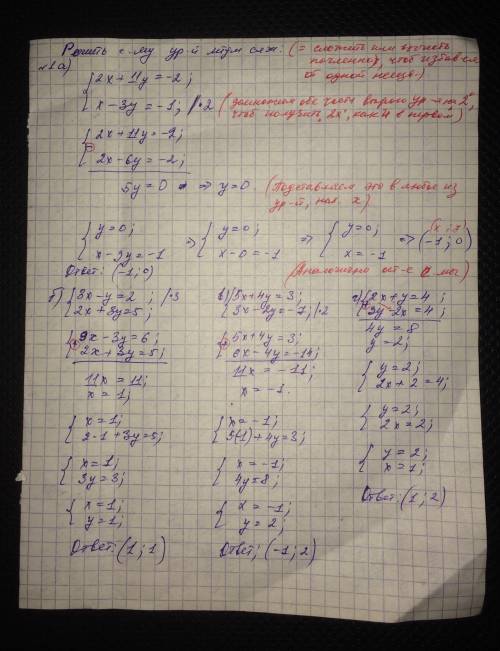 Решить с-му ур-й мтдм слж: (= сложить или вычесть
почленно, чтоб избавиться
от одной неизв.)
№1 а) { 2x + 11y = -2;
x - 3y = -1; /·2 (домножаем обе части второго ур-я на 2,
чтоб получить "2x", как и в первом)
{ 2x + 11y = -2;
2x - 6y = -2;
5y = 0 => y = 0. (Подставляем это в любое из
ур-й, нах. x)
{ y = 0; x - 3y = -1 => { y = 0; x - 0 = -1 => { y = 0; x = -1 => (x ; y) (-1; 0)
Ответ: (-1; 0)
(Аналогично ост-е с-мы)
б) { 3x - y = 2 ; /·3
2x + 3y = 5;
{ 9x - 3y = 6;
2x + 3y = 5;
11x = 11;
x = 1;
{ x = 1;
2·1 + 3y = 5;
{ x = 1;
3y = 3;
{ x = 1;
y = 1;
Ответ: (1 ; 1)
в) { 5x + 4y = 3;
3x - 2y = -7; /·2
{ 5x + 4y = 3;
6x - 4y = -14;
11x = -11;
x = -1.
{ x = -1;
5(-1) + 4y = 3;
{ x = -1;
4y = 8;
{ x = -1;
y = 2;
Ответ: (-1; 2)
г) { 2x + y = 4 ;
3y - 2x = 4;
4y = 8
y = 2;
{ y = 2;
2x + 2 = 4;
{ y = 2;
2x = 2;
{ y = 2;
x = 1;
Ответ: (1 ; 2)